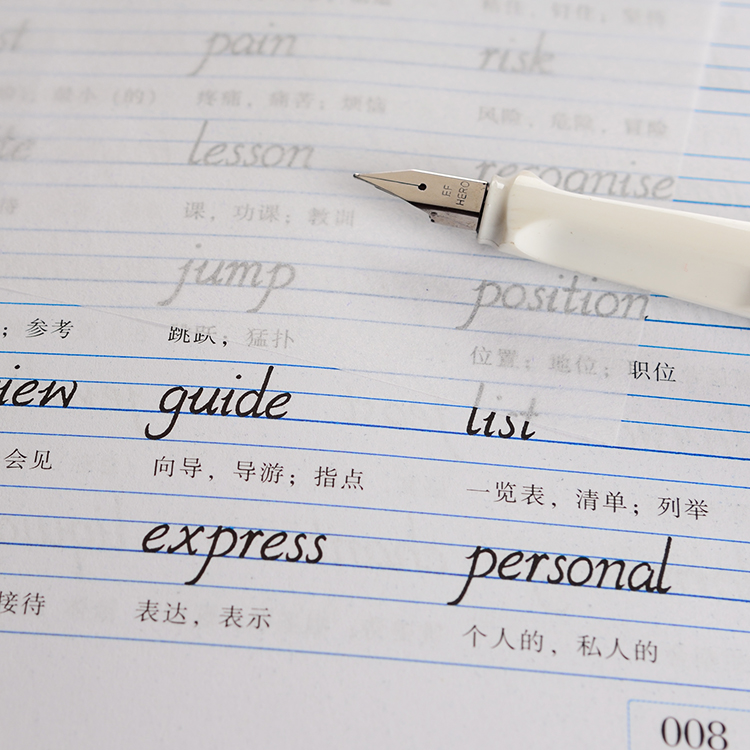 pain risk
疼痛，痛苦；烦恼 风险，危险，冒险
lesson recognise
课，功课；教训
EF
HERO
jump position
；参考 跳跃；猛扑 位置；地位；职位
iew guide list
会见 向导，导游；指点 一览表，清单；列举
express personal
接待 表达，表示 个人的，私人的
008